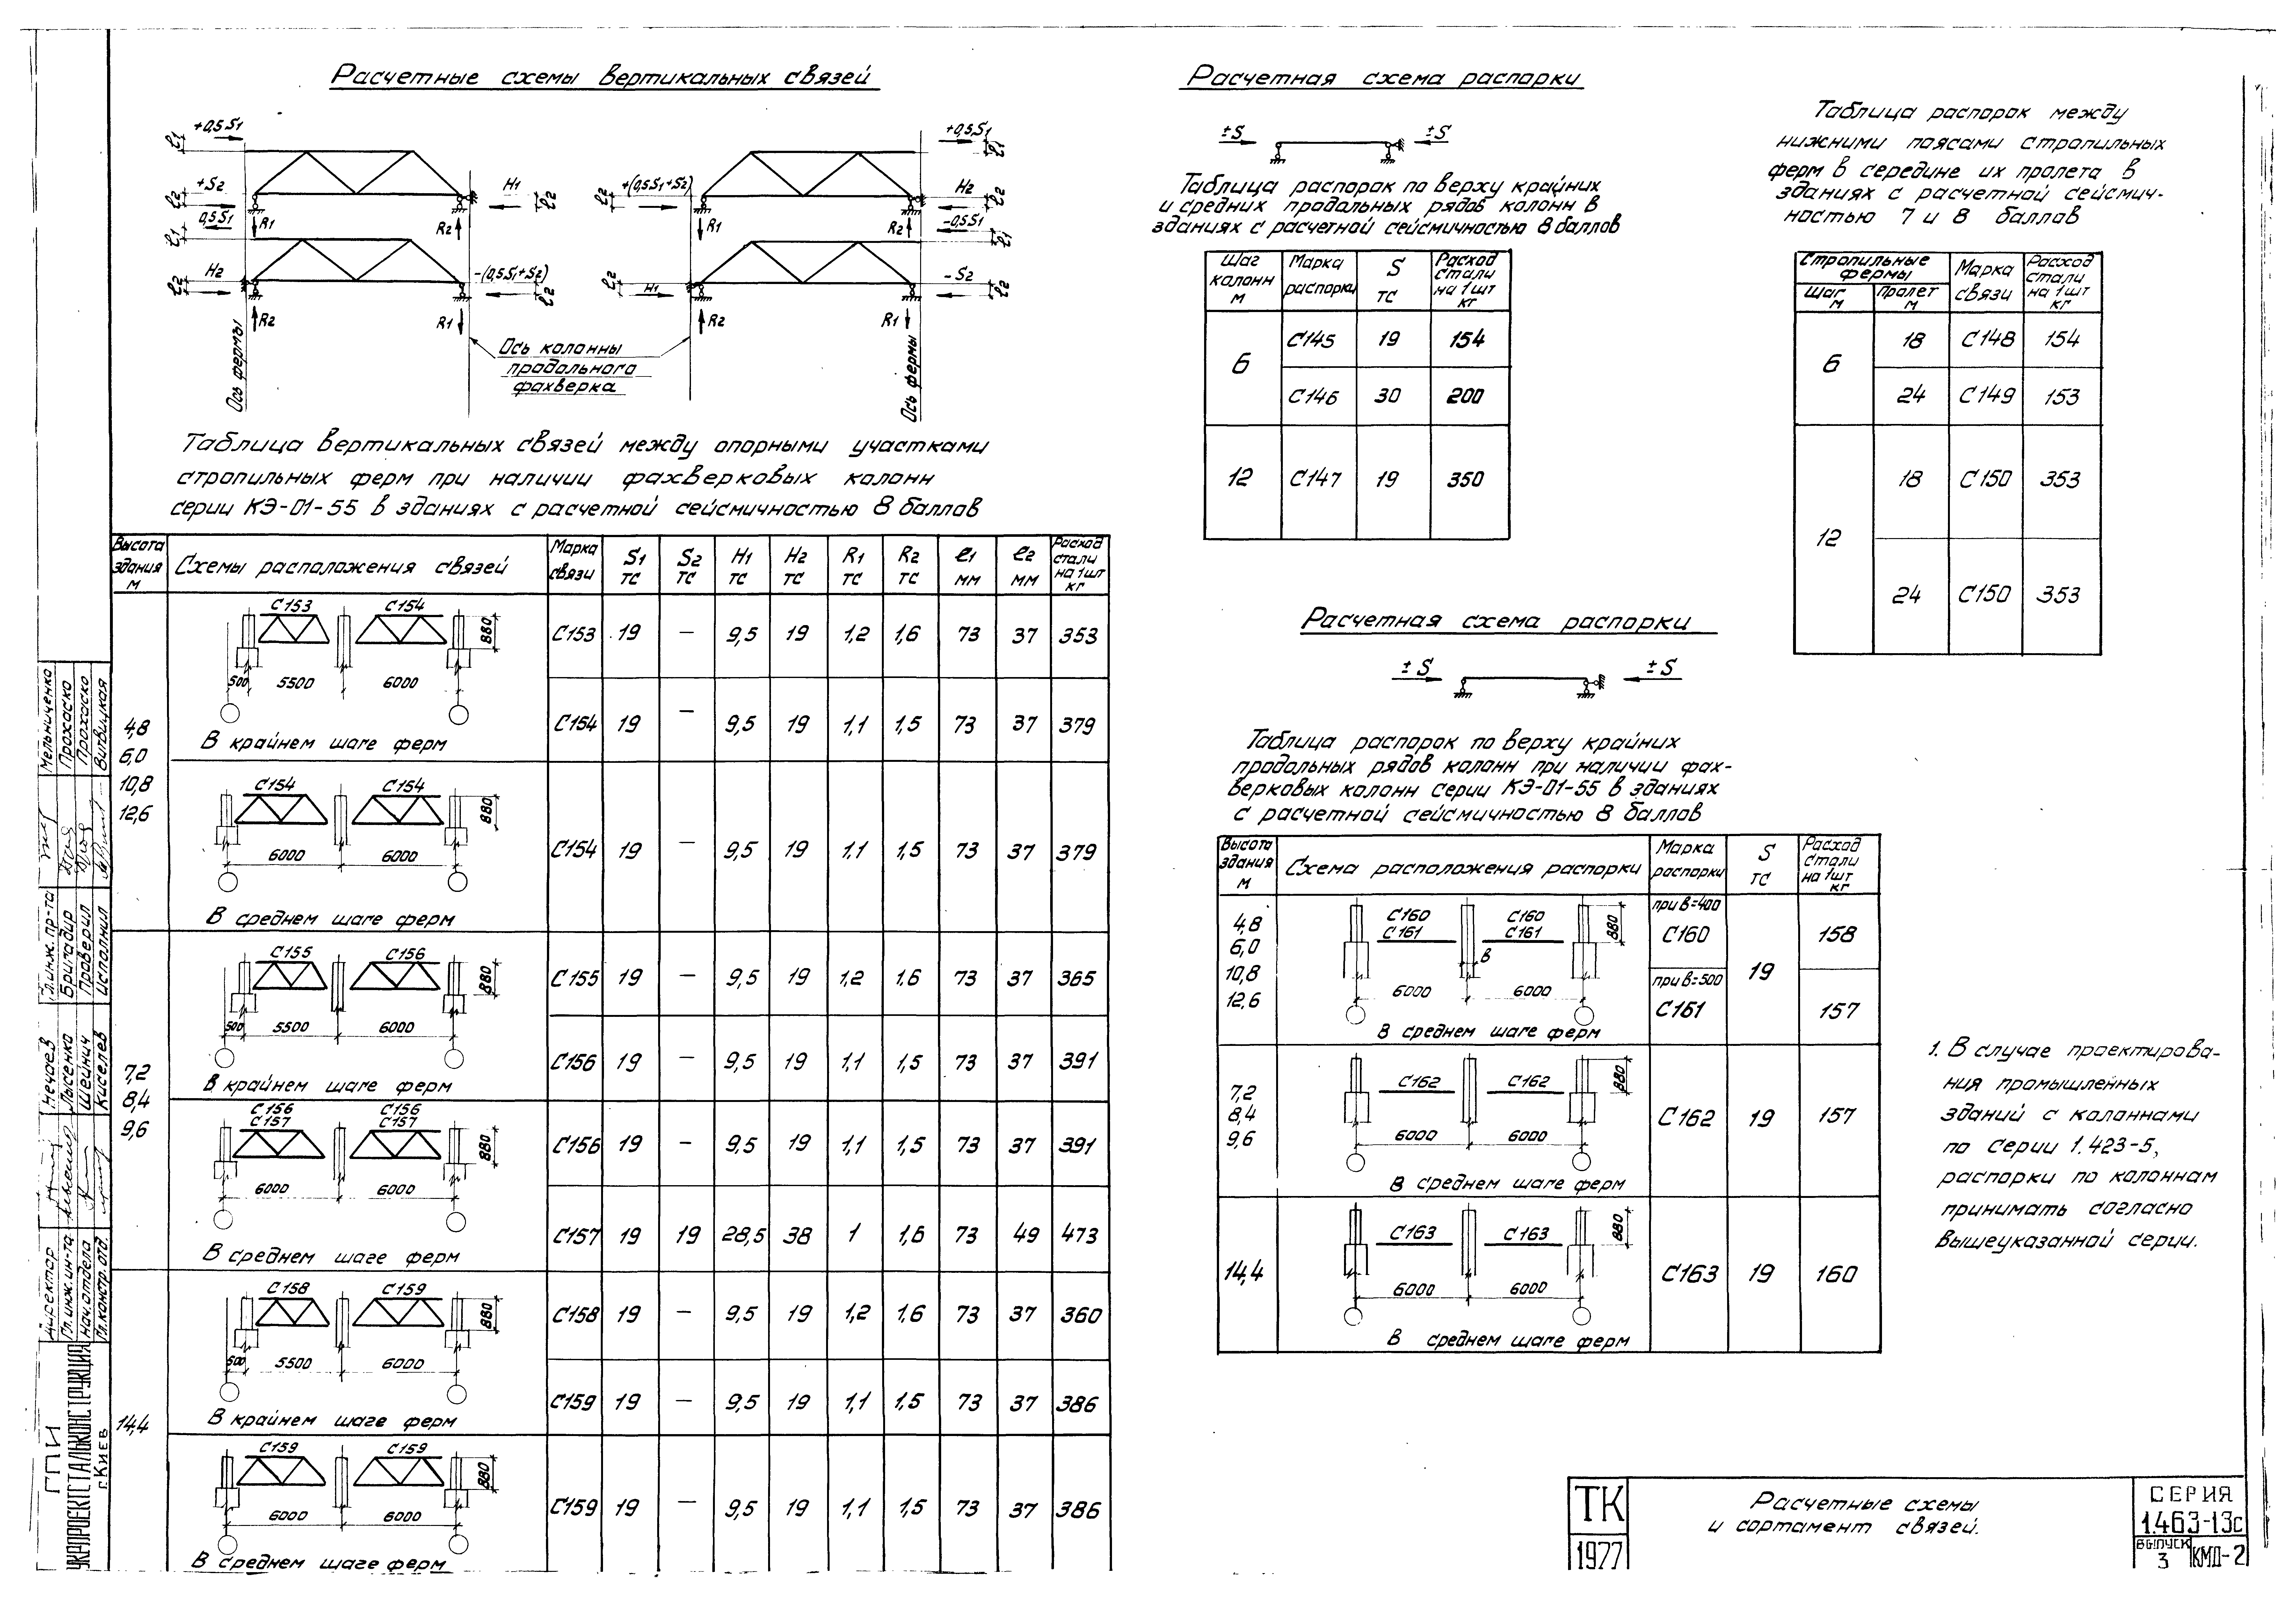 Расчетные схемы вертикальных связей
+0,5S1
ℓ1
+S2
ℓ2
H1
ℓ2
R1
R2
0,5S1
ℓ1
H2
ℓ2
-(0,5S1+S2)
ℓ2
R2
R1
Ось фермы
+0,5S1
ℓ1
+(0,5S1+S2)
ℓ2
H2
ℓ2
R1
R2
-0,5S1
ℓ1
H1
ℓ2
-S2
ℓ2
R2
R1
Ось фермы
Ось колонны
продольного
фахверка
Таблица вертикальных связей между опорными участками
стропильных ферм при наличии фахверковых колонн
серии КЭ-01-55 в зданиях с расчетной сейсмичностью 8 баллов
Высота здания м | Схемы расположения связей | Марка связи | S1 тс | S2 тс | H1 тс | H2 тс | R1 тс | R2 тс | ℓ1 мм | ℓ2 мм | Расход стали на 1шт кг
4,8
6,0
10,8
12,6
С153 С154
880
500 5500 6000
В крайнем шаге ферм
С153 19 — 9,5 19 1,2 1,6 73 37 353
С154 19 — 9,5 19 1,1 1,5 73 37 379
С154 С154
880
6000 6000
В среднем шаге ферм
С154 19 — 9,5 19 1,1 1,5 73 37 379
7,2
8,4
9,6
С155 С156
880
500 5500 6000
В крайнем шаге ферм
С155 19 — 9,5 19 1,2 1,6 73 37 365
С156 19 — 9,5 19 1,1 1,5 73 37 391
С156 С156
С157 С157
880
6000 6000
В среднем шаге ферм
С156 19 — 9,5 19 1,1 1,5 73 37 391
С157 19 19 28,5 38 1 1,6 73 49 473
14,4
С158 С159
880
500 5500 6000
В крайнем шаге ферм
С158 19 — 9,5 19 1,2 1,6 73 37 360
С159 19 — 9,5 19 1,1 1,5 73 37 386
С159 С159
880
6000 6000
В среднем шаге ферм
С159 19 — 9,5 19 1,1 1,5 73 37 386
Расчетная схема распорки
±S ±S
Таблица распорок по верху крайних
и средних продольных рядов колонн в
зданиях с расчетной сейсмичностью 8 баллов
Шаг колонн м | Марка распорки | S тс | Расход стали на 1 шт кг
6 С145 19 154
С146 30 200
12 С147 19 350
Таблица распорок между
нижними поясами стропильных
ферм в середине их пролета в
зданиях с расчетной сейсмич-
ностью 7 и 8 баллов
Стропильные фермы | Марка связи | Расход стали на 1 шт кг
Шаг м | Пролет м
6 18 С148 154
24 С149 153
12 18 С150 353
24 С150 353
Расчетная схема распорки
±S ±S
Таблица распорок по верху крайних
продольных рядов колонн при наличии фах-
верковых колонн серии КЭ-01-55 в зданиях
с расчетной сейсмичностью 8 баллов
Высота здания м | Схема расположения распорки | Марка распорки | S тс | Расход стали на 1шт кг
4,8
6,0
10,8
12,6
С160 С160
С161 С161
880
в
6000 6000
В среднем шаге ферм
при в=400
С160 19 158
при в=500
С161 157
7,2
8,4
9,6
С162 С162
880
6000 6000
В среднем шаге ферм
С162 19 157
14,4
С163 С163
880
6000 6000
В среднем шаге ферм
С163 19 160
1. В случае проектирова-
ния промышленных
зданий с колоннами
по серии 1.423-5,
распорки по колоннам
принимать согласно
вышеуказанной серии.
ТК
1977
Расчетные схемы
и сортамент связей.
СЕРИЯ
1.463-13с
ВЫПУСК
3
КМД-2
ГПИ
УКРПРОЕКТСТАЛЬКОНСТРУКЦИЯ
г. Киев
Директор Нечаев
Гл. инж. ин-та Лысенко
Нач. отдела Шейнич
Гл. констр. отд. Киселев
Гл. инж. пр-та Мельниченко
Бригадир Прохаско
Проверил Прохаско
Исполнил Витвицкая